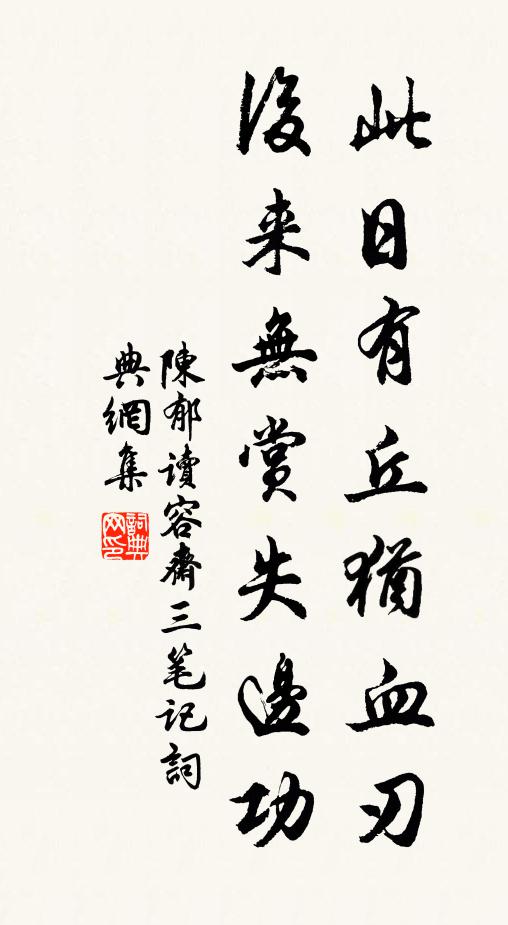 此日有丘猶血刃
後来無賞失邊功
陳郁讀容齋三笔記詞
典網集
詞典網印